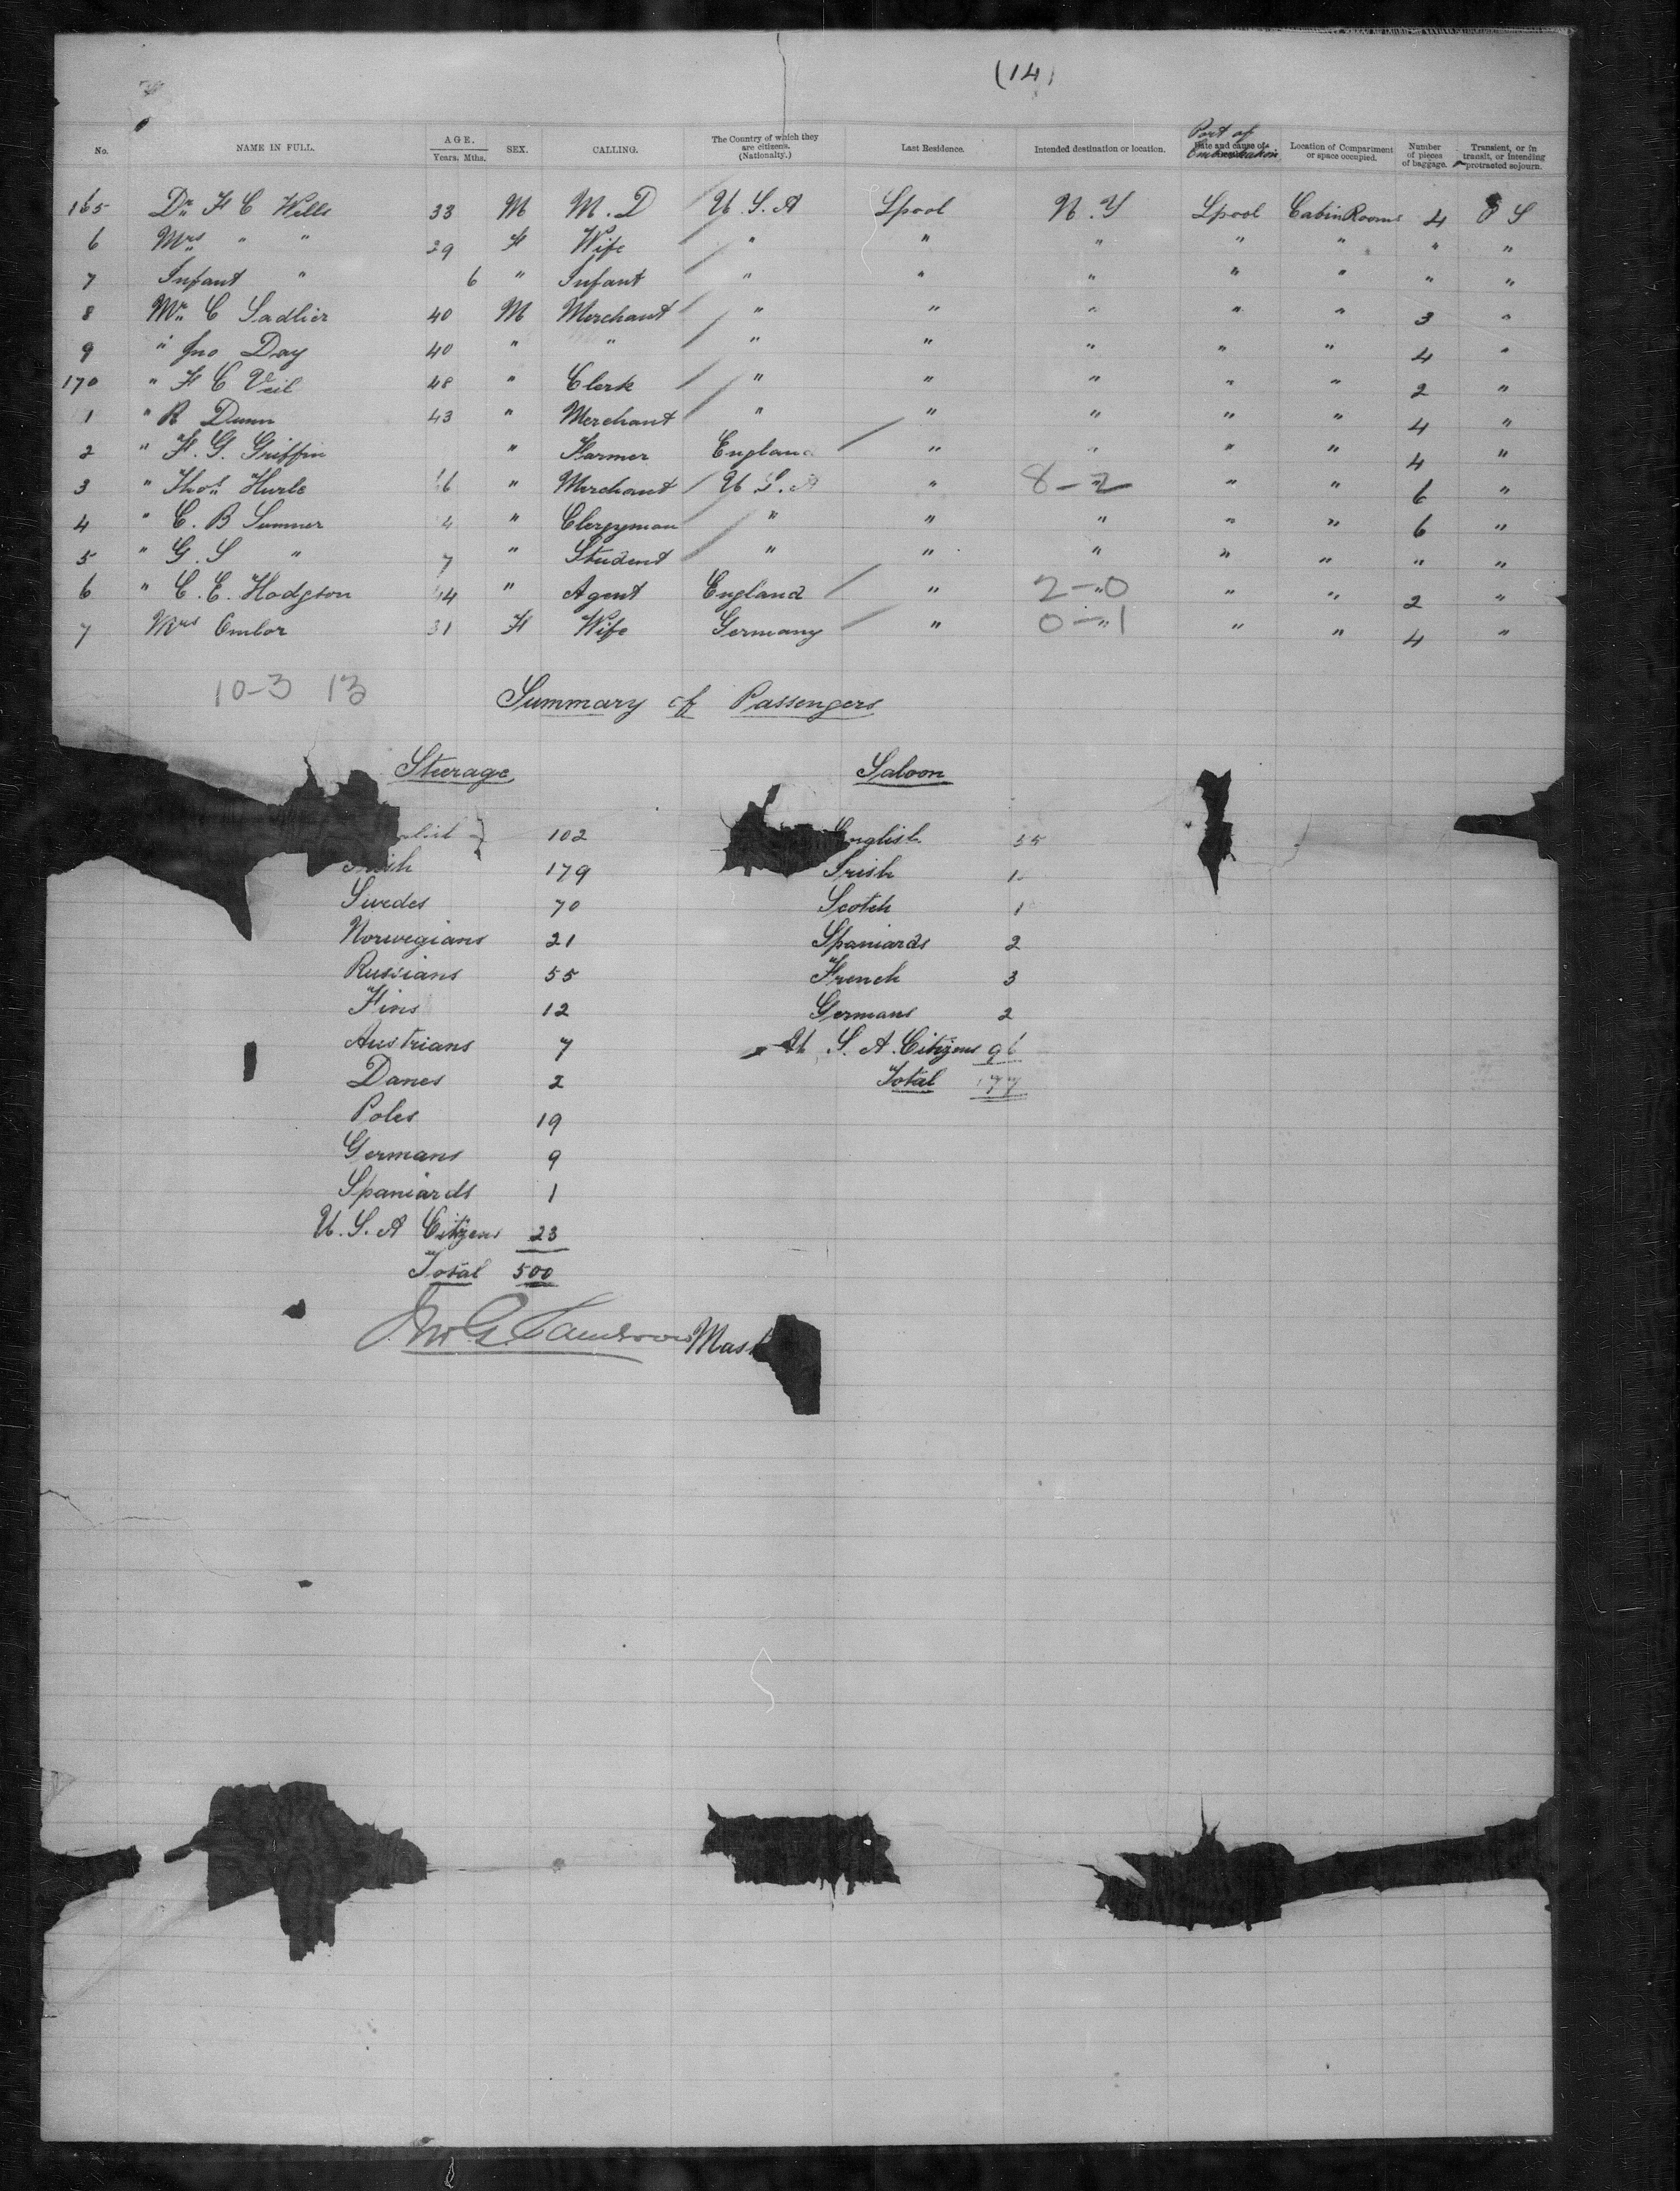 (14)
No. NAME IN FULL. AGE. Years. Mths. SEX. CALLING. The Country of which they are citizens. (Nationality.) Last Residence. Intended destination or location. Port of Embarkation Date and cause of Location of Compartment or space occupied. Number of pieces of baggage. Transient, or in transit, or intending protracted sojourn.
165 Dr. F C Wells 33 M M.D U.S.A Lpool N.Y Lpool Cabin Rooms 4 P S
6 Mrs " " 29 F Wife " " " " " " "
7 Infant " 6 " Infant " " " " " " "
8 Mr. C Sadlier 40 M Merchant " " " " " 3 "
9 " Jno Day 40 " " " " " " " 4 "
170 " F C Veil 48 " Clerk " " " " " 2 "
1 " R Dunn 43 " Merchant " " " " " 4 "
2 " F. G. Griffin " Farmer England " " " " 4 "
3 " Thos. Hurle 6 " Merchant U.S.A " 8-2 " " 6 "
4 " C. B Sumner 4 " Clergyman " " " " " 6 "
5 " G. S " 7 " Student " " " " " " "
6 " C. E. Hodgson 44 " Agent England " 2-0 " " 2 "
7 Mrs Ombor 31 F Wife Germany " 0-1 " " 4 "
10-3 13
Summary of Passengers
Steerage Saloon
102 English 55
Irish 179 Irish 1
Swedes 70 Scotch 1
Norwegians 21 Spaniards 2
Russians 55 French 3
Fins 12 Germans 2
Austrians 7 U.S.A. Citizens 96
Danes 2 Total 177
Poles 19
Germans 9
Spaniards 1
U.S.A Citizens 23
Total 500
Mast